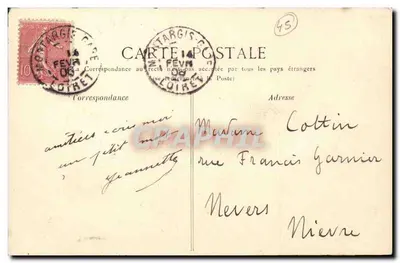 45
CARTE POSTALE
MONTARGIS-GARE
14
FEVR
06
LOIRET
MONTARGIS-GARE
14
FEVR
06
LOIRET
10
Correspondance au verso
accepté par tous les pays étrangers
Correspondance
Adresse
amitiés écris moi
un petit mot
Jeannette
Madame Cottin
rue Francis Garnier
Nevers
Nievre
DELCAMPE